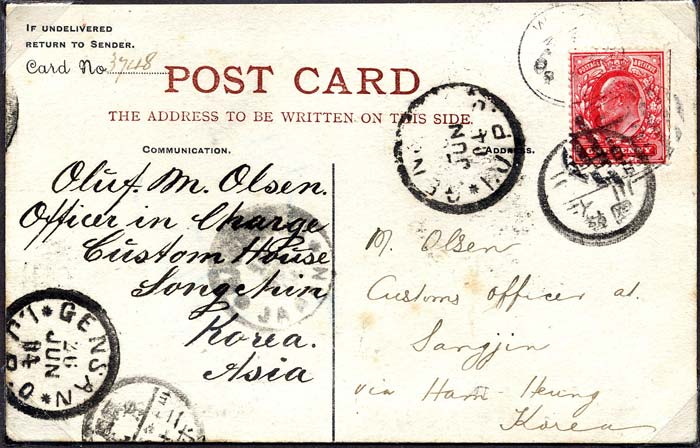 IF UNDELIVERED
RETURN TO SENDER.
Card No 3748
POST CARD
THE ADDRESS TO BE WRITTEN ON THIS SIDE.
COMMUNICATION.
ADDRESS.
Oluf. M. Olsen.
Officer in Charge
Custom House
Songchin
Korea.
Asia
M. Olsen
Customs officer at
Sangjin
via Ham-Heung
Korea
GENSAN
I.J.P.O.
26
JUN
04
JUN
04
I.J.P.O.
JAPAN
POSTAGE & REVENUE
PENNY